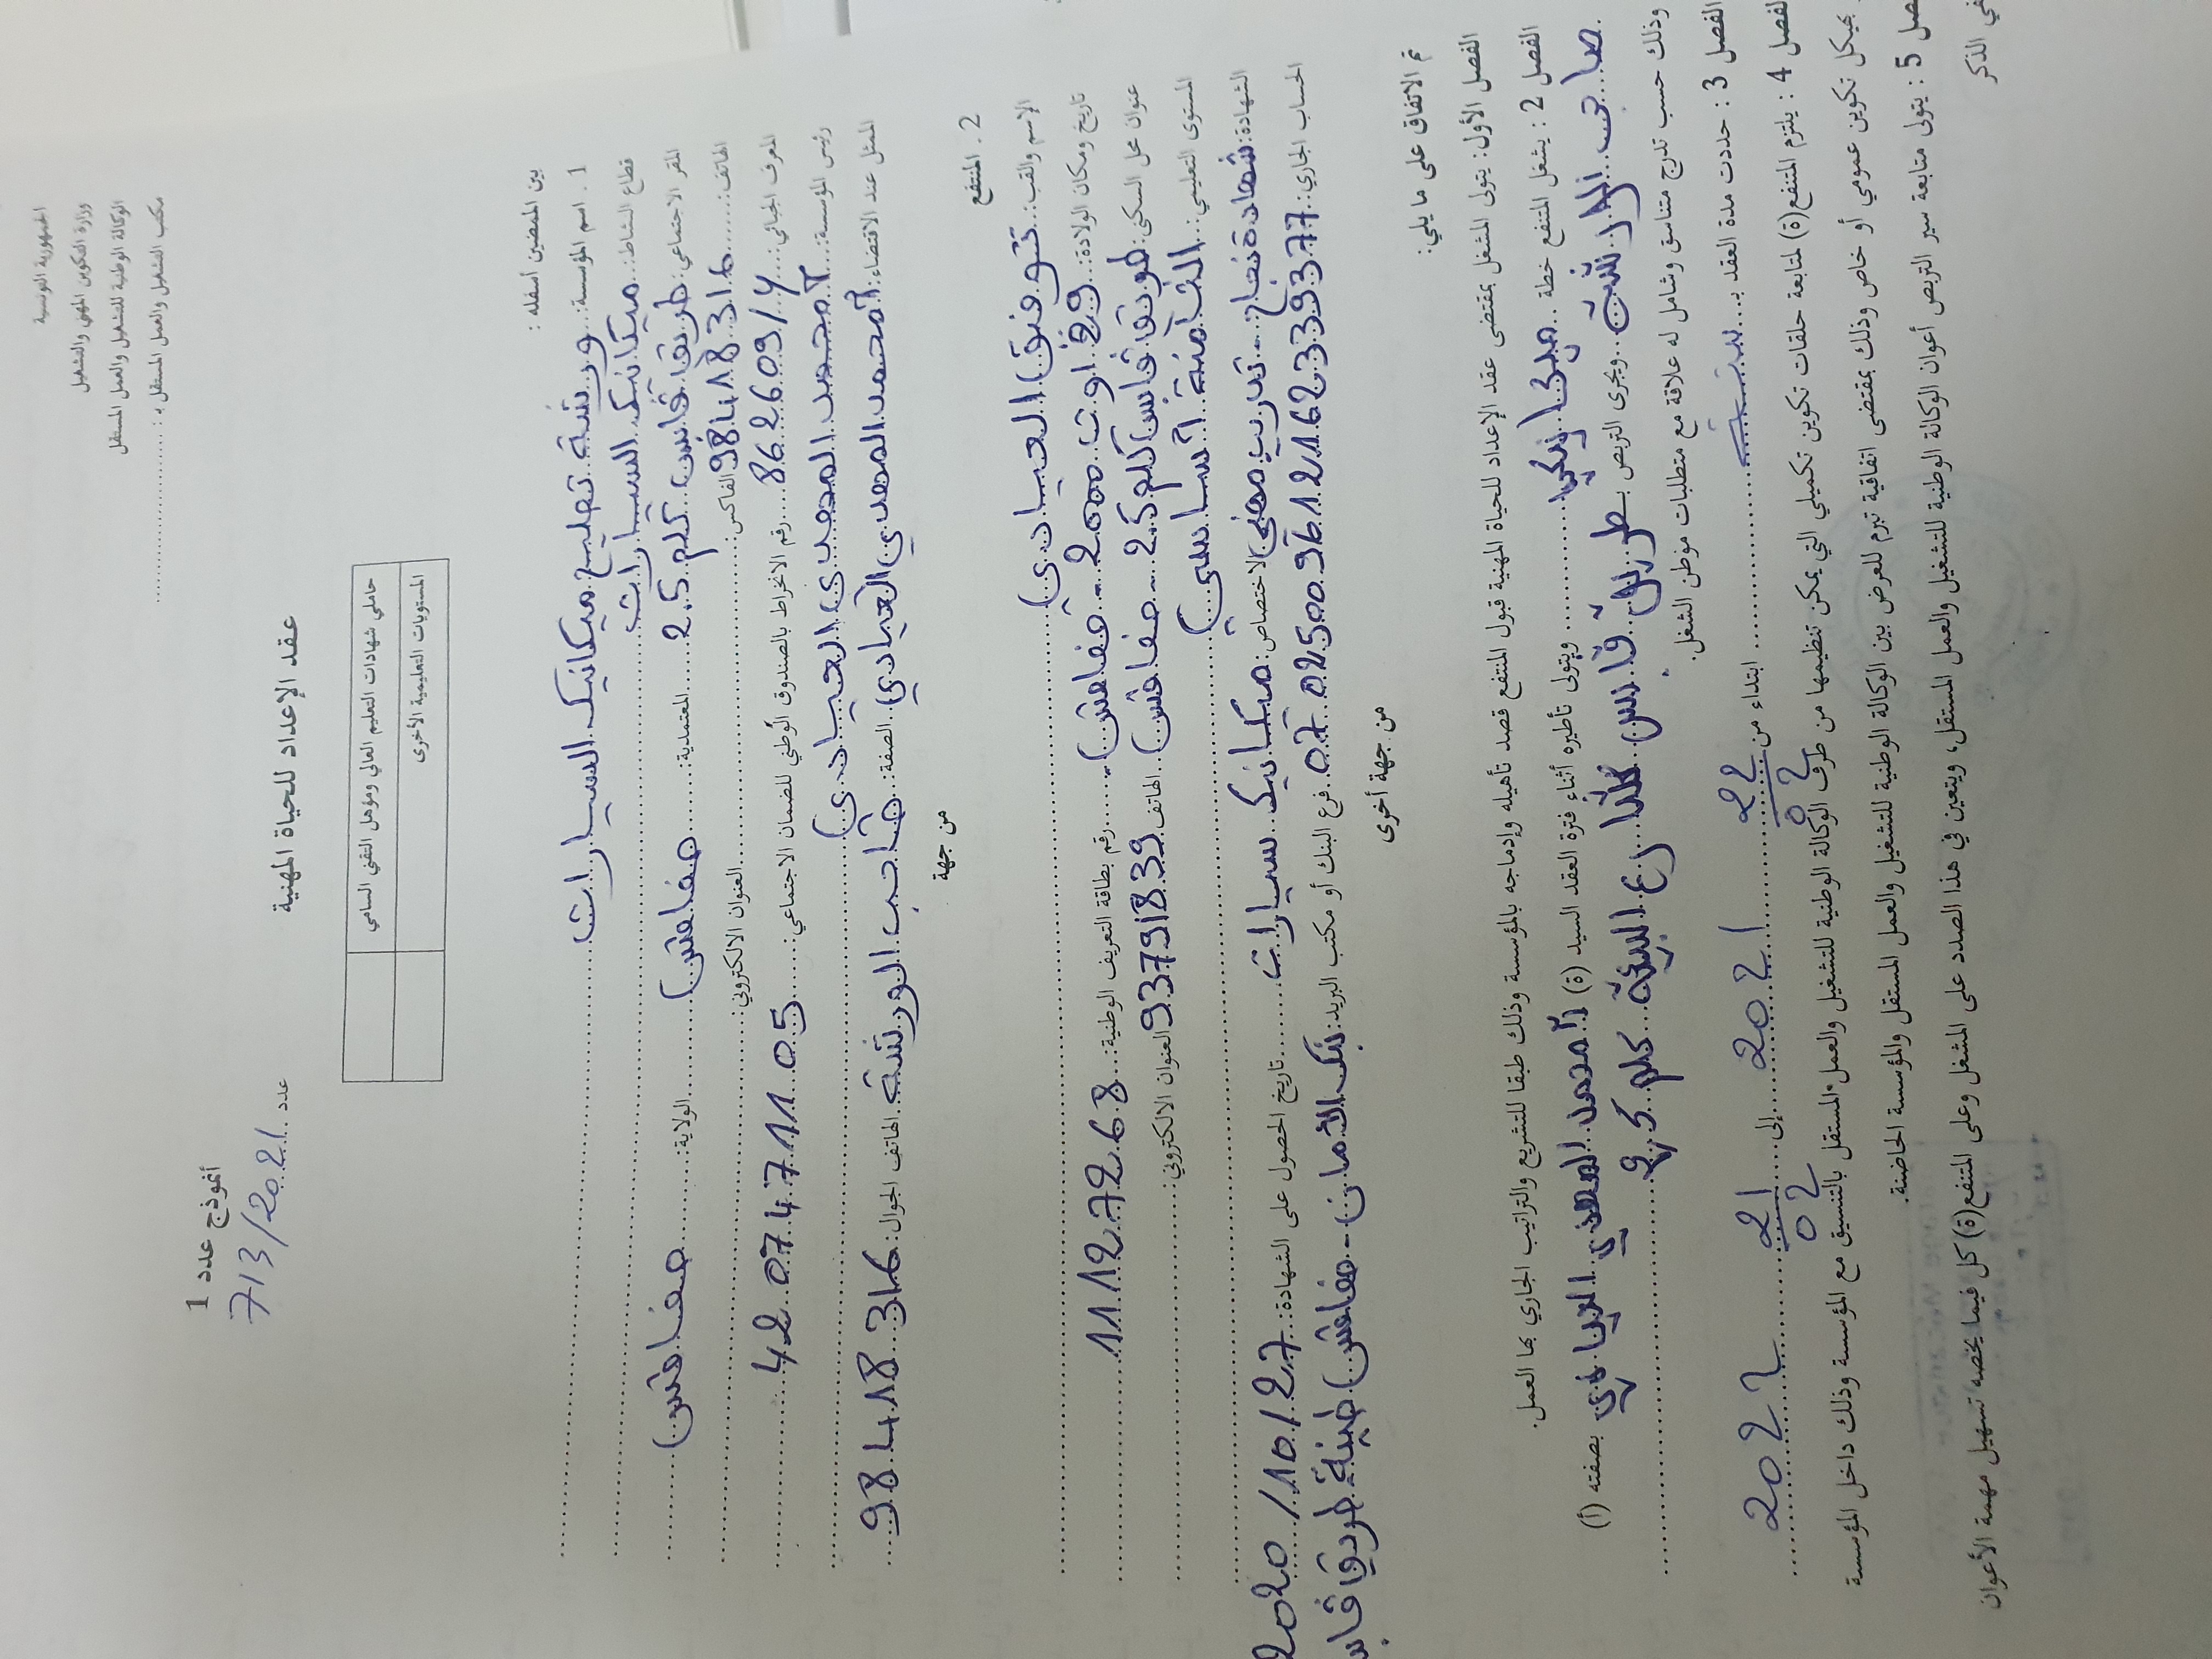 الجمهورية التونسية
وزارة التكوين المهني والتشغيل
الوكالة الوطنية للتشغيل والعمل المستقل
مكتب التشغيل والعمل المستقل بـ :
أنموذج عدد 1
عدد 713/2021
عقد الإعداد للحياة المهنية
حاملي شهادات التعليم العالي ومؤهل التقني السامي
المستويات التعليمية الأخرى
بين الممضين أسفله :
1 . اسم المؤسسة: ورشة تصليح ميكانيك السيارات
قطاع النشاط: ميكانيك السيارات
المقر الاجتماعي: طريق قابس كلم 2.5 المعتمدية: صفاقس الولاية: صفاقس
الهاتف: 98418316 الفاكس: العنوان الالكتروني:
المعرف الجبائي: 862609/Y رقم الانخراط بالصندوق الوطني للضمان الاجتماعي: 42 07 47 11 05
رئيس المؤسسة: امحمد المهدي العيادي
الممثل عند الاقتضاء: امحمد المهدي العيادي الصفة: صاحب الورشة الهاتف الجوال: 98 418 316
من جهة
2 . المنتفع
الإسم واللقب: توفيق العيادي
تاريخ ومكان الولادة: 09 اوت 2000 - صفاقس رقم بطاقة التعريف الوطنية: 11127268
عنوان محل السكنى: طريق قابس كلم 2.5 - صفاقس الهاتف 93791839 العنوان الالكتروني:
المستوى التعليمي: الثامنة أساسي
الشهادة: شهادة نجاح - تدريب مهني الاختصاص: ميكانيك سيارات تاريخ الحصول على الشهادة: 2020/10/27
الحساب الجاري: 07 025009612162339377 فرع البنك أو مكتب البريد: بنك الأمان - صفاقس طينة طريق قابس
من جهة أخرى
تم الاتفاق على ما يلي:
الفصل الأول: يتولى المشغل بمقتضى عقد الإعداد للحياة المهنية قبول المنتفع قصد تأهيله وإدماجه بالمؤسسة وذلك طبقا للتشريع والتراتيب الجاري بها العمل.
الفصل 2 : يشغل المنتفع خطة ميكانيكي ويتولى تأطيره أثناء فترة العقد السيد (ة) امحمد المهدي العيادي بصفته (أ)
صاحب الورشة ويجرى التربص بـ طريق قابس شارع البيئة كلم 2.5
وذلك حسب تدرج متناسق وشامل له علاقة مع متطلبات مؤطن الشغل.
الفصل 3 : حددت مدة العقد بـ سنة ابتداء من 22/02 2021 إلى 21/02 2022
الفصل 4 : يلتزم المنتفع(ة) لمتابعة حلقات تكوين تكميلي التي يمكن تنظيمها من طرف الوكالة الوطنية للتشغيل والعمل المستقل بالتنسيق مع المؤسسة وذلك داخل المؤسسة
بهيكل تكوين عمومي أو خاص وذلك بمقتضى اتفاقية تبرم للغرض بين الوكالة الوطنية للتشغيل والعمل المستقل والمؤسسة الحاضنة.
صل 5 : يتولى متابعة سير التربص أعوان الوكالة الوطنية للتشغيل والعمل المستقل، ويتعين في هذا الصدد على المشغل وعلى المنتفع(ة) كل فيما يخصه تسهيل مهمة الأعوان
في الذكر